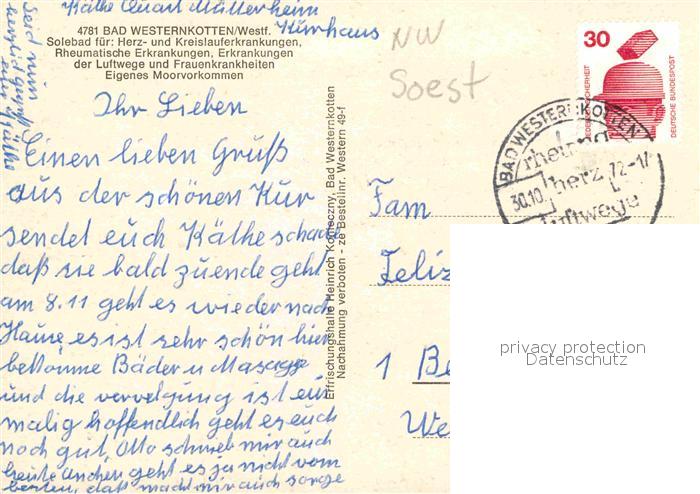 Käthe Quart Mütterheim
Kurhaus
4781 BAD WESTERNKOTTEN/Westf.
Solebad für: Herz- und Kreislauferkrankungen,
Rheumatische Erkrankungen, Erkrankungen
der Luftwege und Frauenkrankheiten
Eigenes Moorvorkommen
Ihr Lieben
Einen lieben Gruß
aus der schönen Kur
sendet euch Käthe schade
daß sie bald zuende geht
am 8.11 geht es wieder nach
Hause es ist sehr schön hier
bekomme Bäder u Masage
und die vervelgung ist ein
malig hoffendlich geht es euch
noch gut, Otto schrieb mir auch
heute Anchen geht es ja nicht vom
besten, daß macht mir auch sorge
seid nun
herzlich gegrüßt
eure Käthe
Erfrischungshalle Heinrich Konieczny, Bad Westernkotten
Nachahmung verboten - ze Bestellnr. Western 49-f
NW
Soest
30
DEUTSCHE BUNDESPOST
BAD WESTERNKOTTEN
rheuma
herz
luftwege
30.10.72-1
Fam
Feliz
1 Be
We
privacy protection
Datenschutz